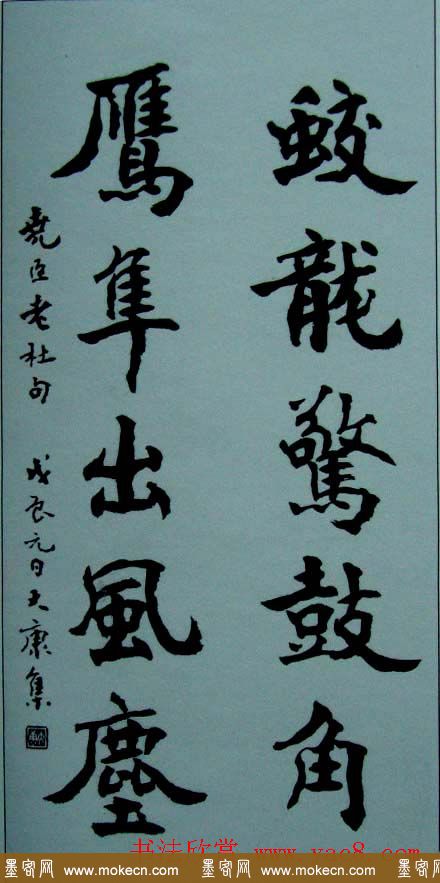 蛟龍驚鼓角
鷹隼出風塵
堯臣老杜句 戊辰元日大康集
书法欣赏 www.yac8.com
墨客网 www.mokecn.com 墨客网 www.mokecn.com 墨客网 www.mokecn.com